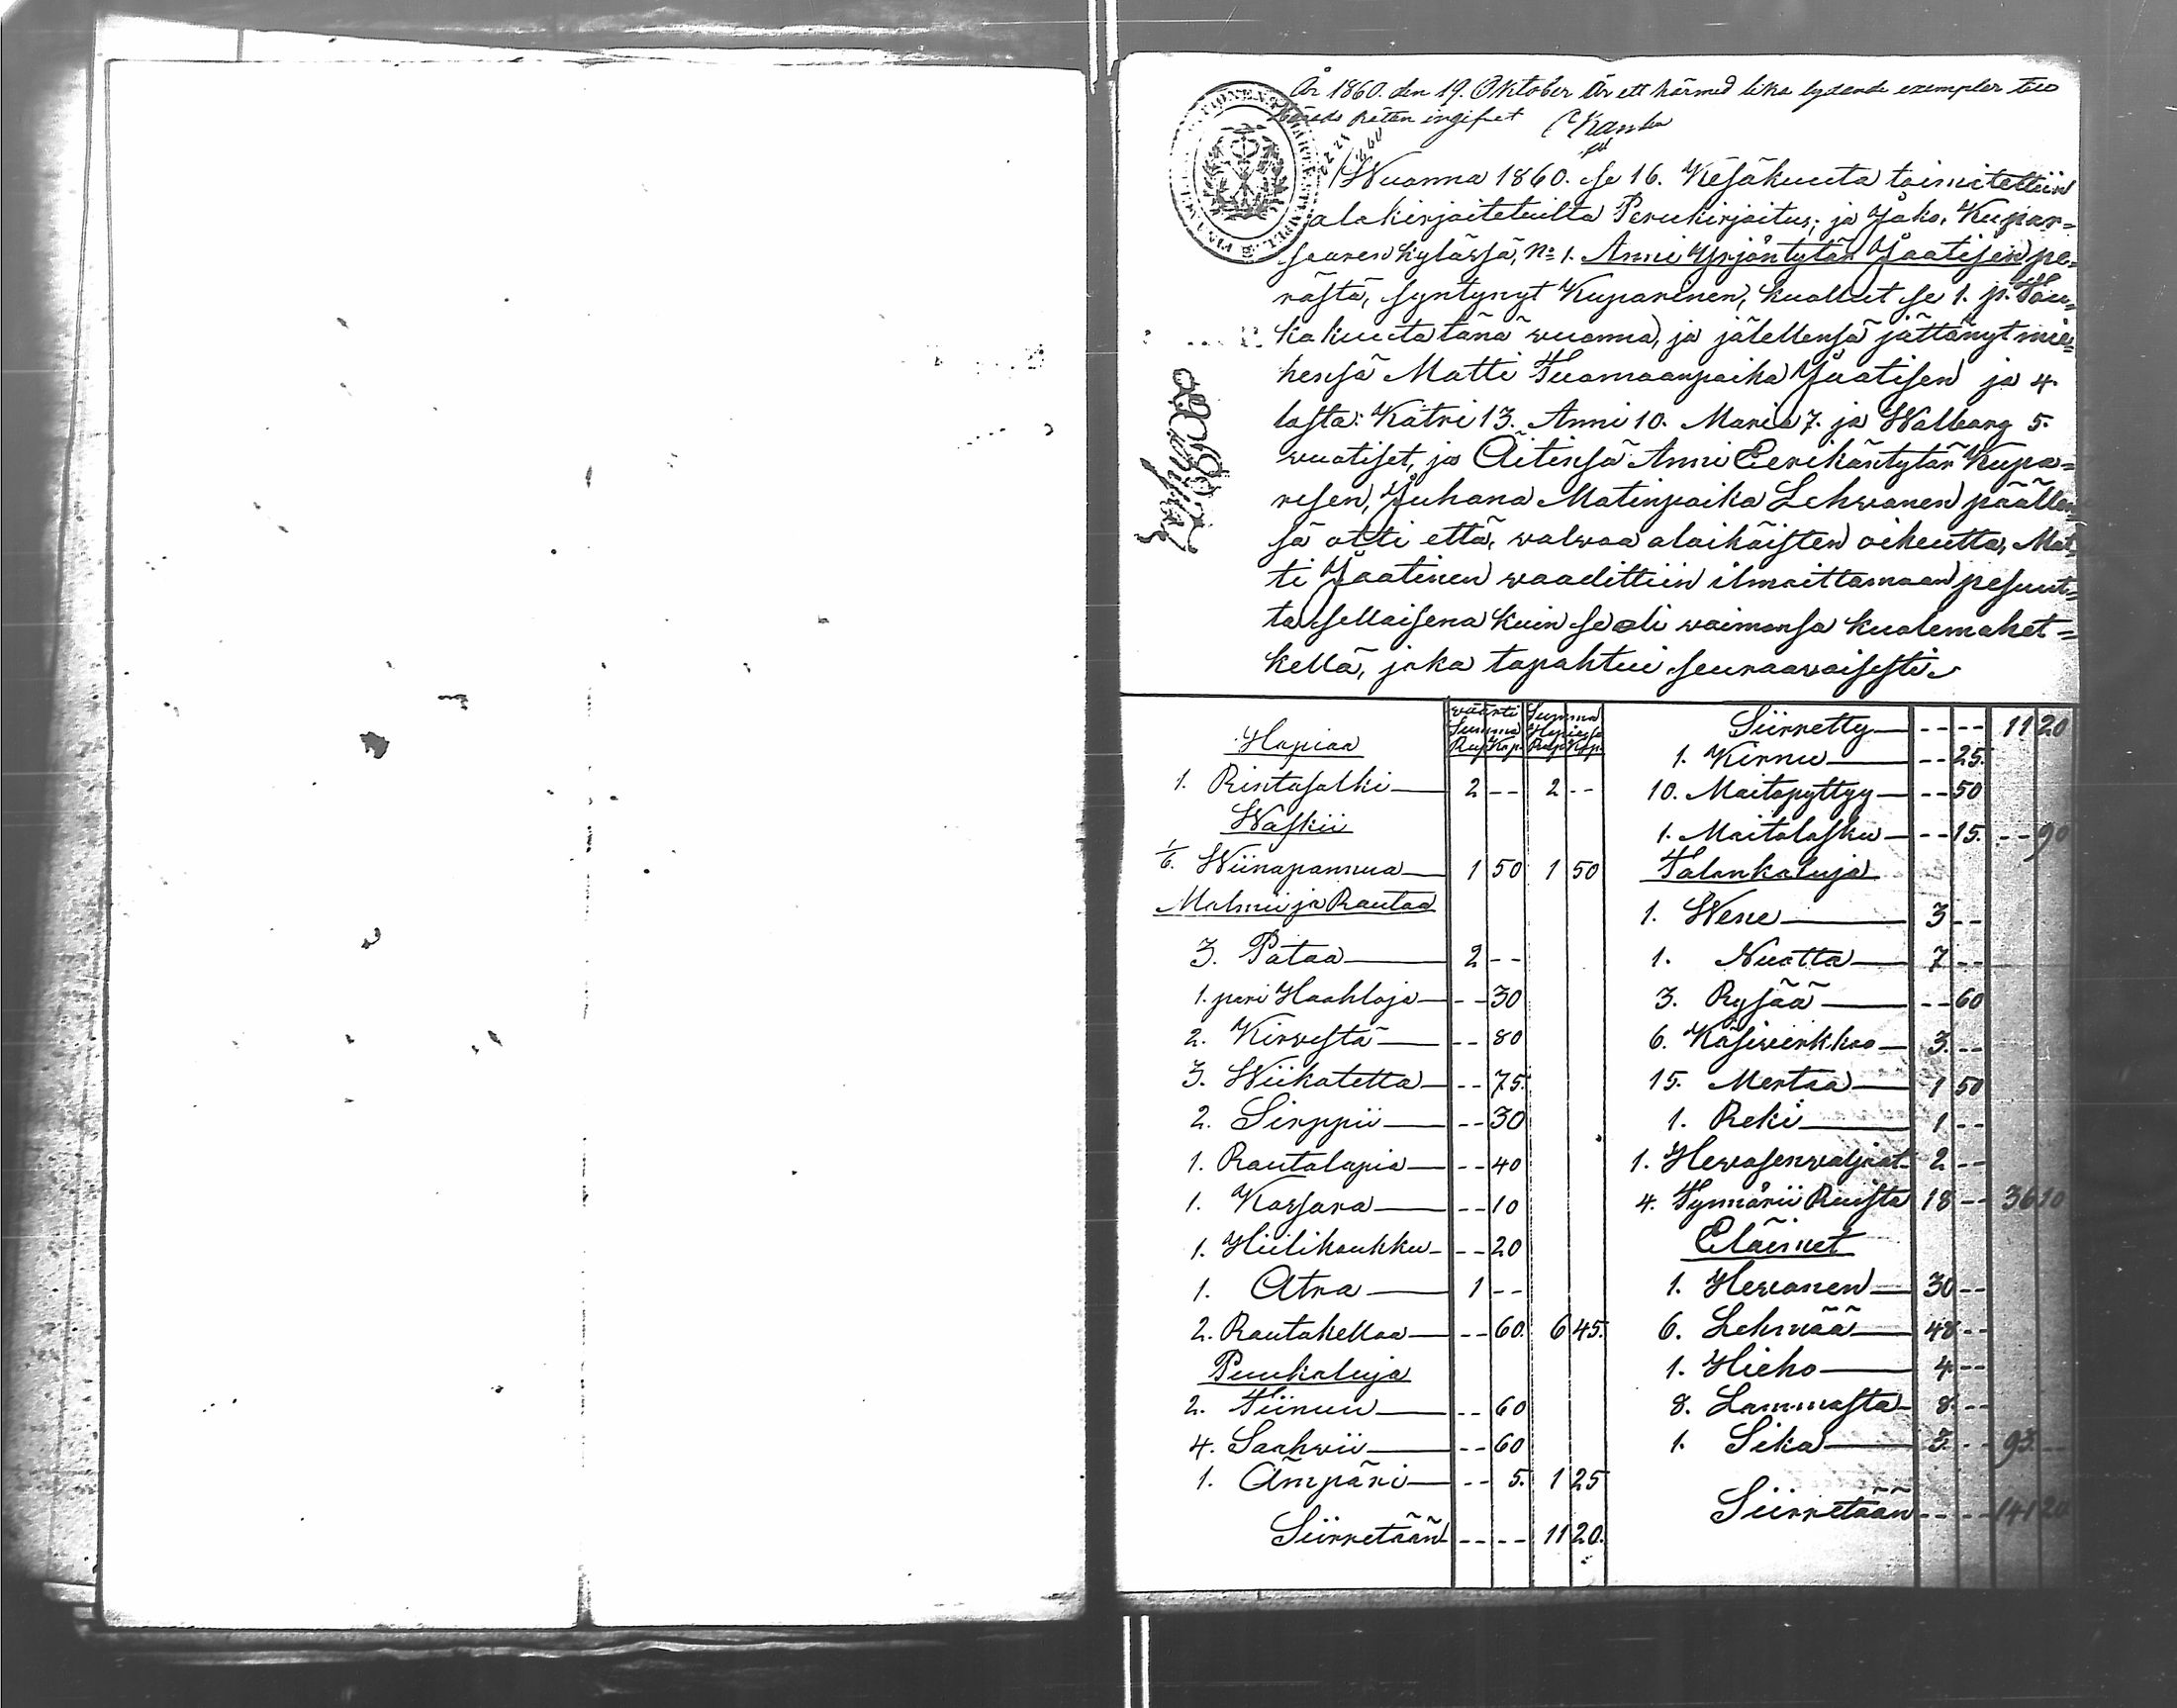 År 1860. den 19. Oktober Är ett härmed lika lydande exemplar till
Härads Rätten ingifvet
Wuonna 1860. se 16. Kesäkuuta toimitettiin
alakirjoitetuilta Perukirjoitus, ja Jako, Kupar=
saaren kylässä, No 1. Anni Yrjöntytär Jaatisen pe=
rästä, syntynyt Kuparinen, kuollut se 1. p. Tou=
kokuuta tänä wuonna, ja jälellensä jättänyt mie=
hensä Matti Tuomaanpoika Jaatisen ja 4.
lasta: Katri 13. Anni 10. Maria 7. ja Walborg 5.
wuotiset, ja Äitinsä Anni Eerikäntytär Kupa=
risen, Juhana Matinpoika Lehwonen päällen=
sä otti että, walwoa alaikäisten oikeutta, Mat=
ti Jaatinen waadittiin ilmoittamaan pesuut=
ta sellaisena kuin se oli waimonsa kuolemahet=
kellä, joka tapahtui seuraawaisesti.
wäärti Summa
Summa Hopiassa
Hopiaa Rup Kop. Rup Kop.
1. Rintasolki 2 -- 2 --
Waskii
1/6. Wiinapannua 1 50 1 50
Malmii ja Rautaa
3. Pataa 2 --
1. pari Haahloja -- 30
2. Kirwestä -- 80
3. Wiikatetta -- 75.
2. Sirppii -- 30
1. Rautalapia -- 40
1. Kassara -- 10
1. Hiilikoukku -- 20
1. Atra 1 --
2. Rautakelloa -- 60. 6 45.
Puukaluja
2. Tiinuu -- 60
4. Saahwii -- 60
1. Ämpäri -- 5. 1 25
Siirretään -- -- 11 20.
Siirretty -- -- 11 20
1. Kirnu -- 25.
10. Maitopyttyy -- 50
1. Maitolasku -- 15. -- 90
Talonkaluja
1. Wene 3 --
1. Nuotta 7 --
3. Rysää -- 60
6. Käsiwerkkoo 3. --
15. Mertaa 1 50
1. Reki 1 --
1. Hewosenwaljaat 2 --
4. Tynnärii Ruista 18 -- 36 10
Eläimet
1. Hewonen 30 --
6. Lehmää 48 --
1. Hieho 4 --
8. Lammasta 8. --
1. Sika 3. -- 93. --
Siirretään -- -- 141 20